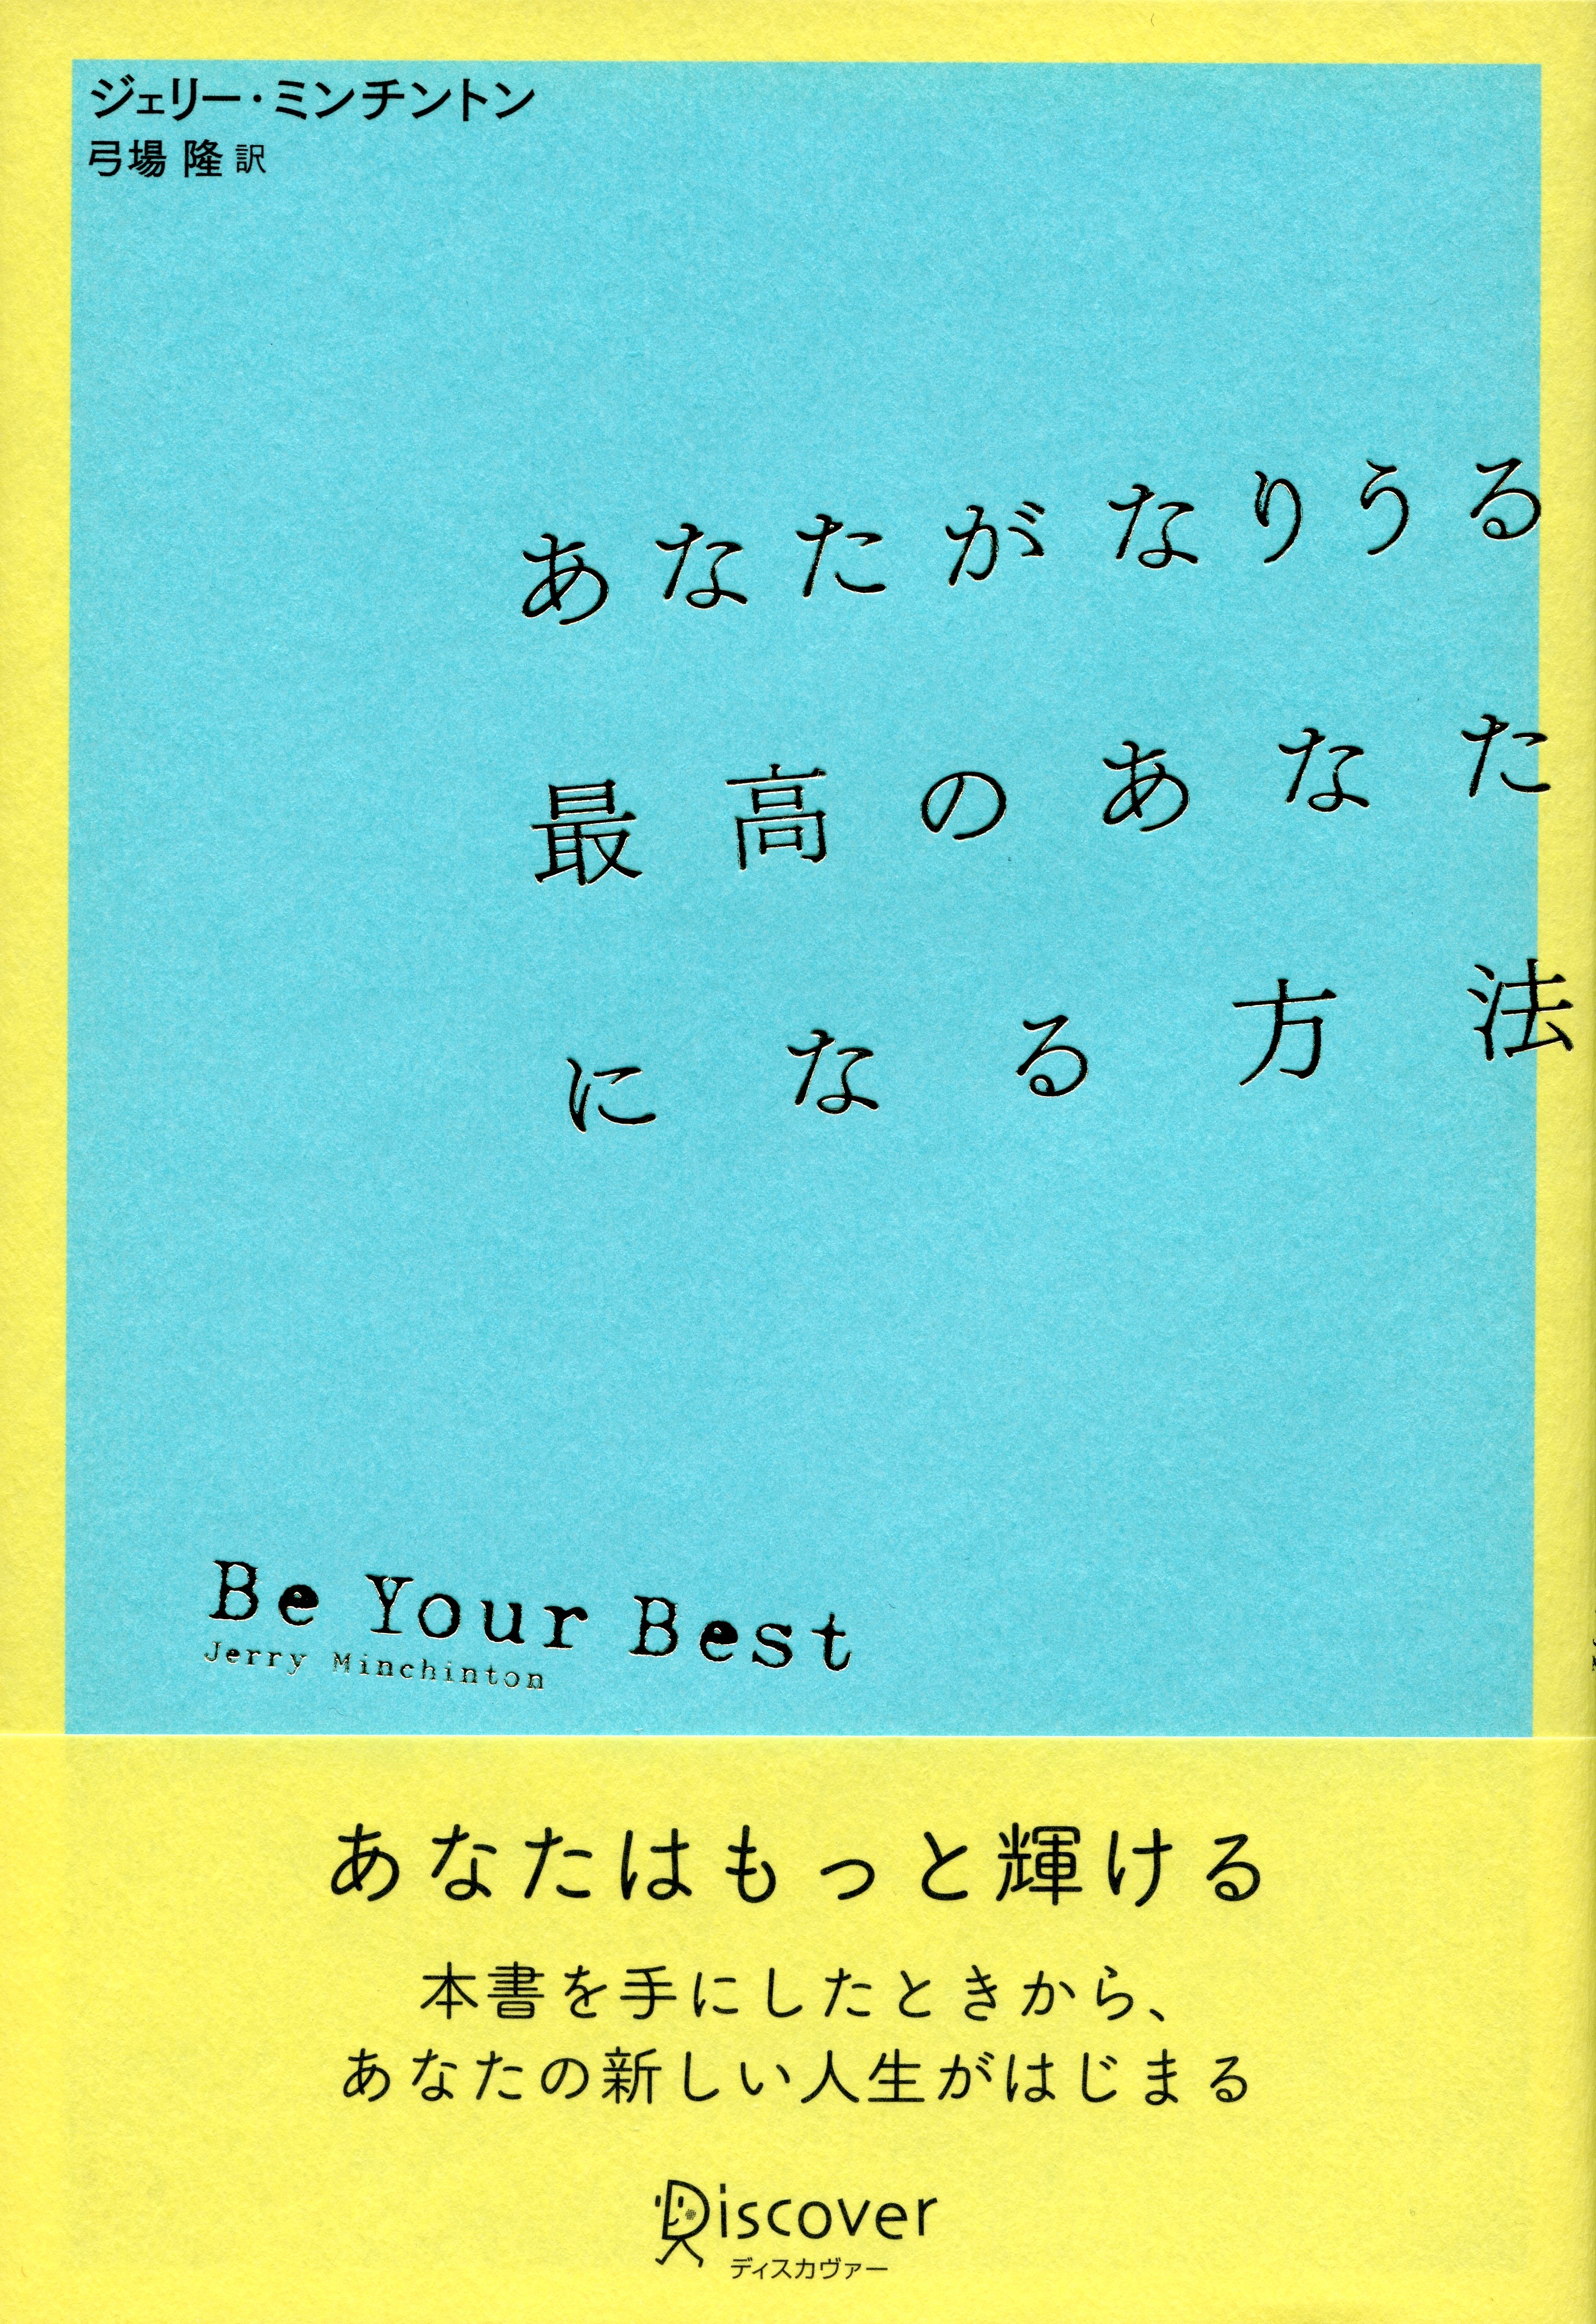 ジェリー・ミンチントン
弓場 隆 訳
あなたがなりうる
最高のあなた
になる方法
Be Your Best
Jerry Minchinton
あなたはもっと輝ける
本書を手にしたときから、
あなたの新しい人生がはじまる
Discover
ディスカヴァー